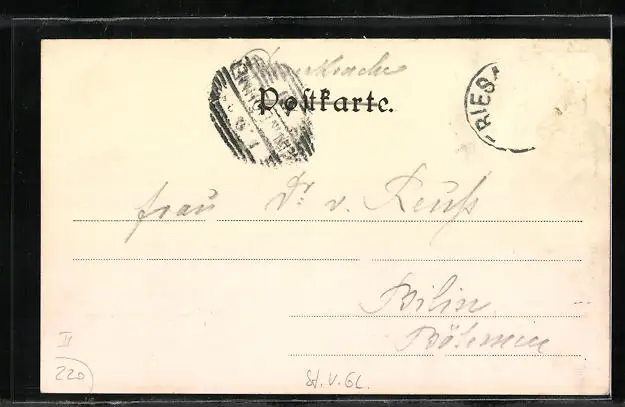 Drucksache
Postkarte.
RIES
Frau Dr. v. Reuß
Bilin
Böhmen
II
220
St.V.GL.